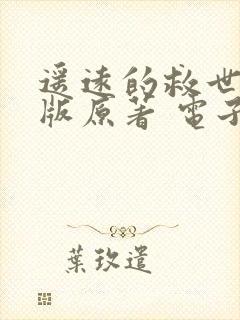 遥远的救世
版原著 電子
葉玫遣